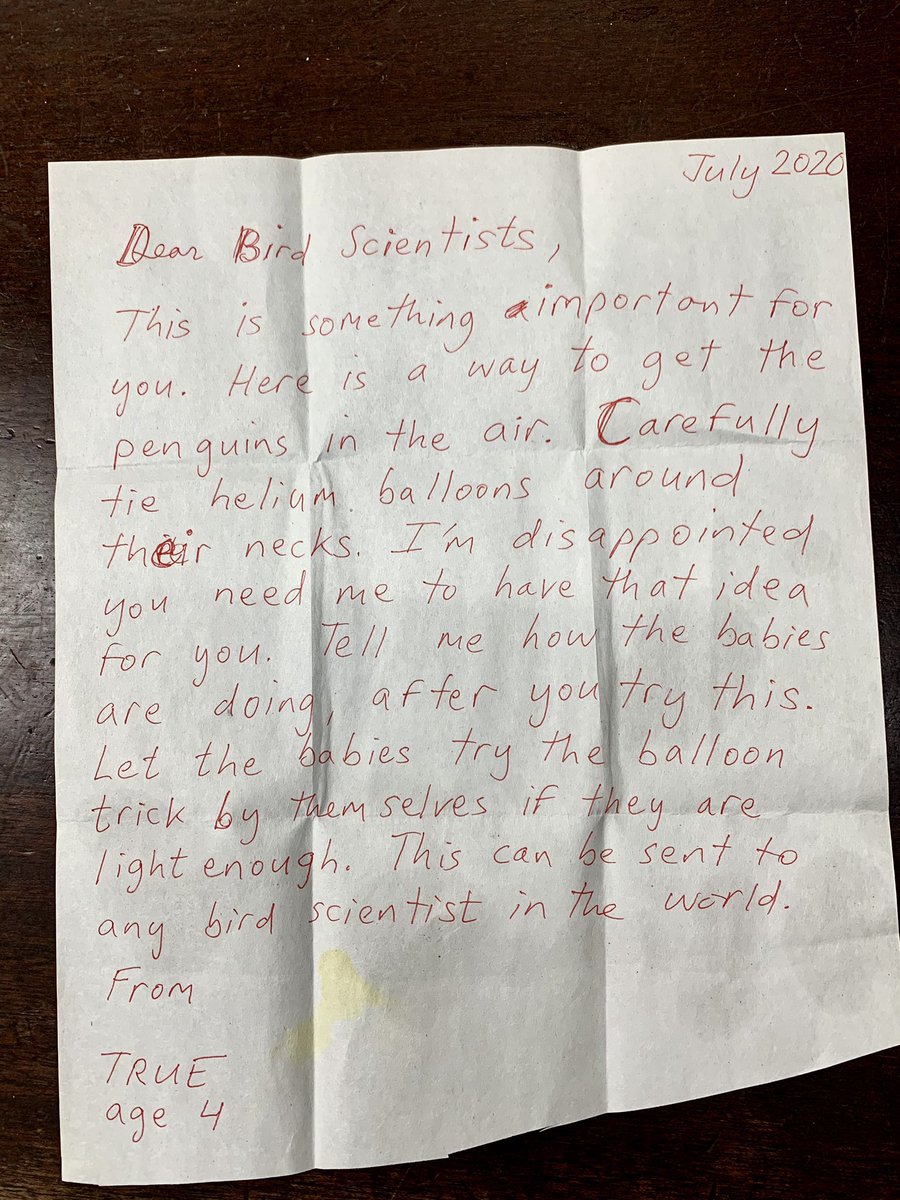 July 2020
Dear Bird Scientists,
This is something important for
you. Here is a way to get the
penguins in the air. Carefully
tie helium balloons around
their necks. I'm disappointed
you need me to have that idea
for you. Tell me how the babies
are doing, after you try this.
Let the babies try the balloon
trick by themselves if they are
light enough. This can be sent to
any bird scientist in the world.
From
TRUE
age 4